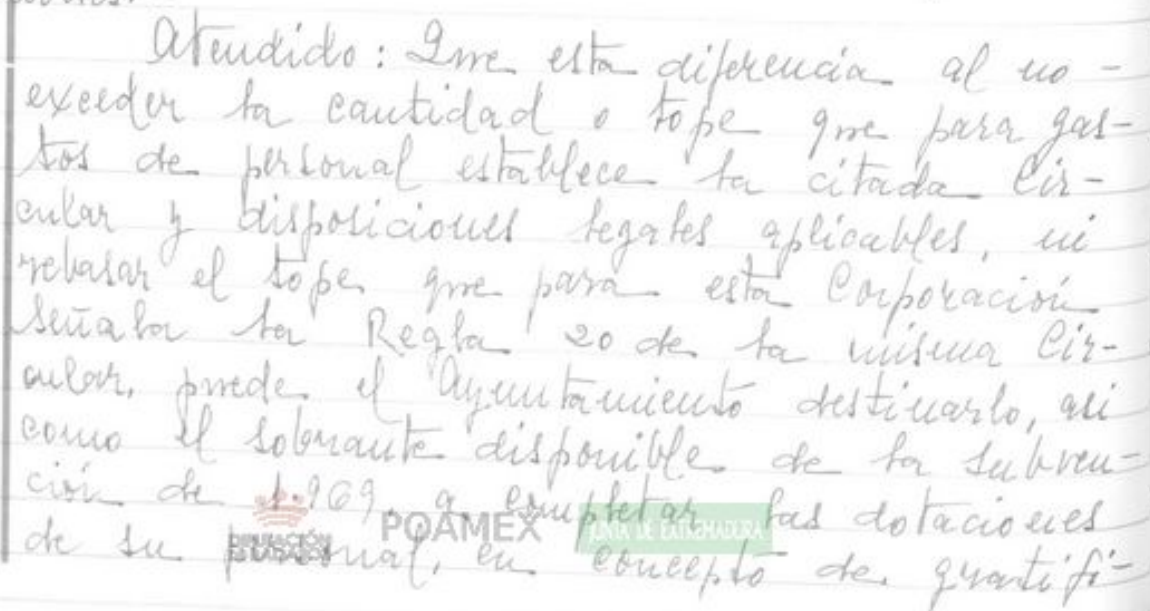 Atendido: Que esta diferencia al no -
exceder la cantidad o tope que para gas-
tos de personal establece la citada Cir-
cular y disposiciones legales aplicables, ni
rebasar el tope que para esta Corporación
señala la Regla 20 de la misma Cir-
cular, puede el Ayuntamiento destinarlo, asi
como el sobrante disponible de la subven-
ción de 1.969, a completar las dotaciones
de su personal, en concepto de gratifi-
DIPUTACIÓN DE BADAJOZ
POAMEX
JUNTA DE EXTREMADURA